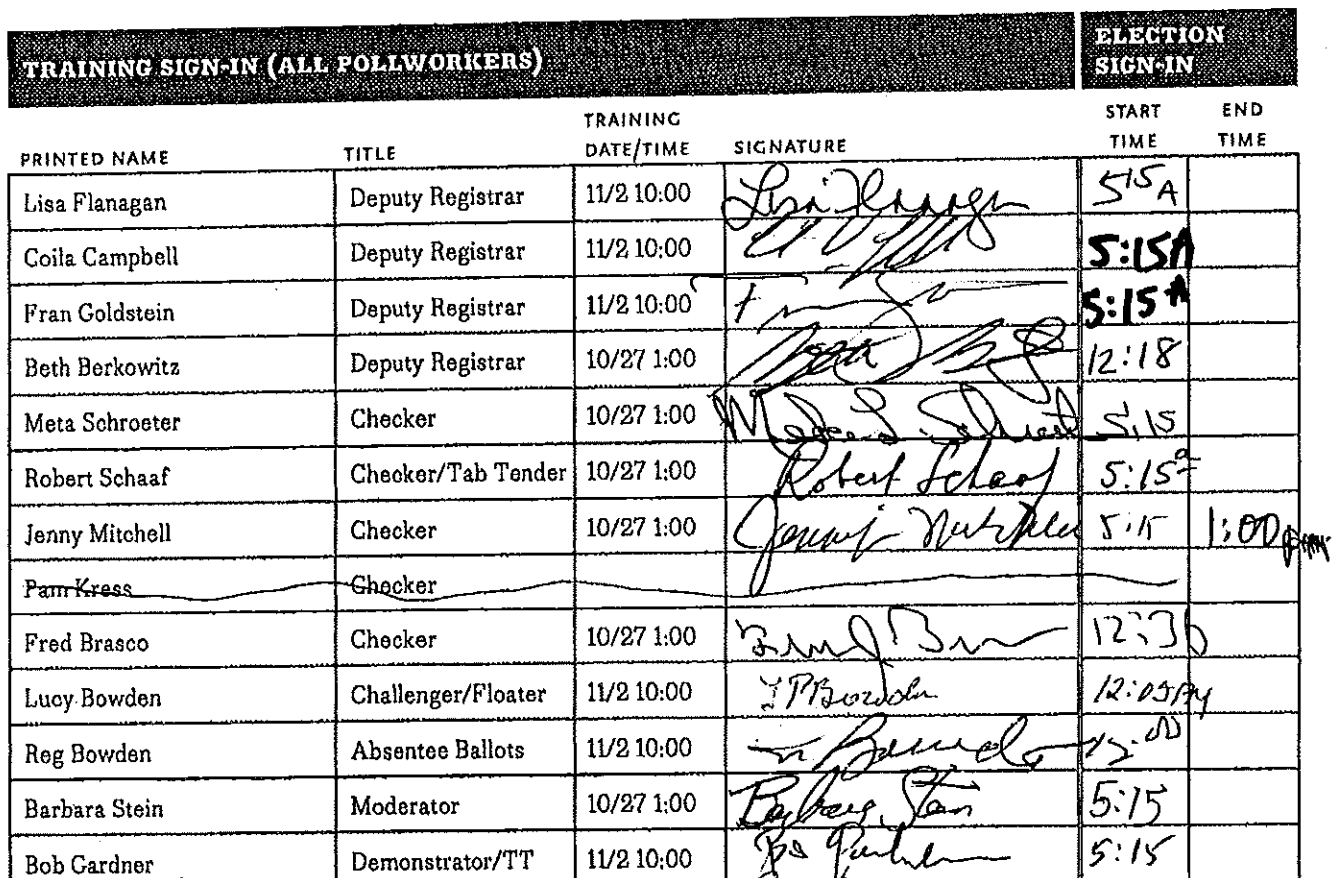 TRAINING SIGN-IN (ALL POLLWORKERS) ELECTION SIGN-IN
PRINTED NAME TITLE TRAINING DATE/TIME SIGNATURE START TIME END TIME
Lisa Flanagan Deputy Registrar 11/2 10:00 Lisa Flanagan 5 15 A
Coila Campbell Deputy Registrar 11/2 10:00 5:15A
Fran Goldstein Deputy Registrar 11/2 10:00 5:15 A
Beth Berkowitz Deputy Registrar 10/27 1:00 12:18
Meta Schroeter Checker 10/27 1:00 5:15
Robert Schaaf Checker/Tab Tender 10/27 1:00 Robert Schaaf 5:15 a
Jenny Mitchell Checker 10/27 1:00 5:15 1:00 pm
Pam Kress Checker
Fred Brasco Checker 10/27 1:00
Lucy Bowden Challenger/Floater 11/2 10:00 LPBowden
Reg Bowden Absentee Ballots 11/2 10:00
Barbara Stein Moderator 10/27 1:00 Barbara Stein 5:15
Bob Gardner Demonstrator/TT 11/2 10:00 5:15